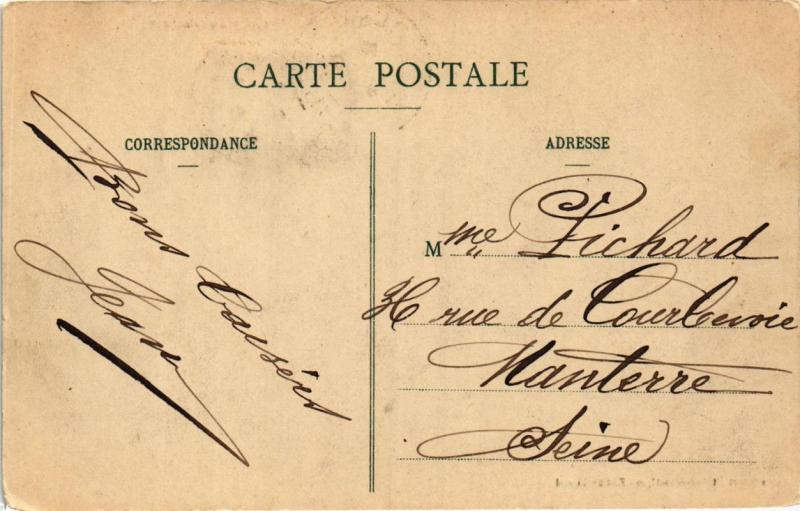 CARTE POSTALE
CORRESPONDANCE
Bons baisers
Jean
ADRESSE
Mme Pichard
rue de Courbevoie
Nanterre
Seine